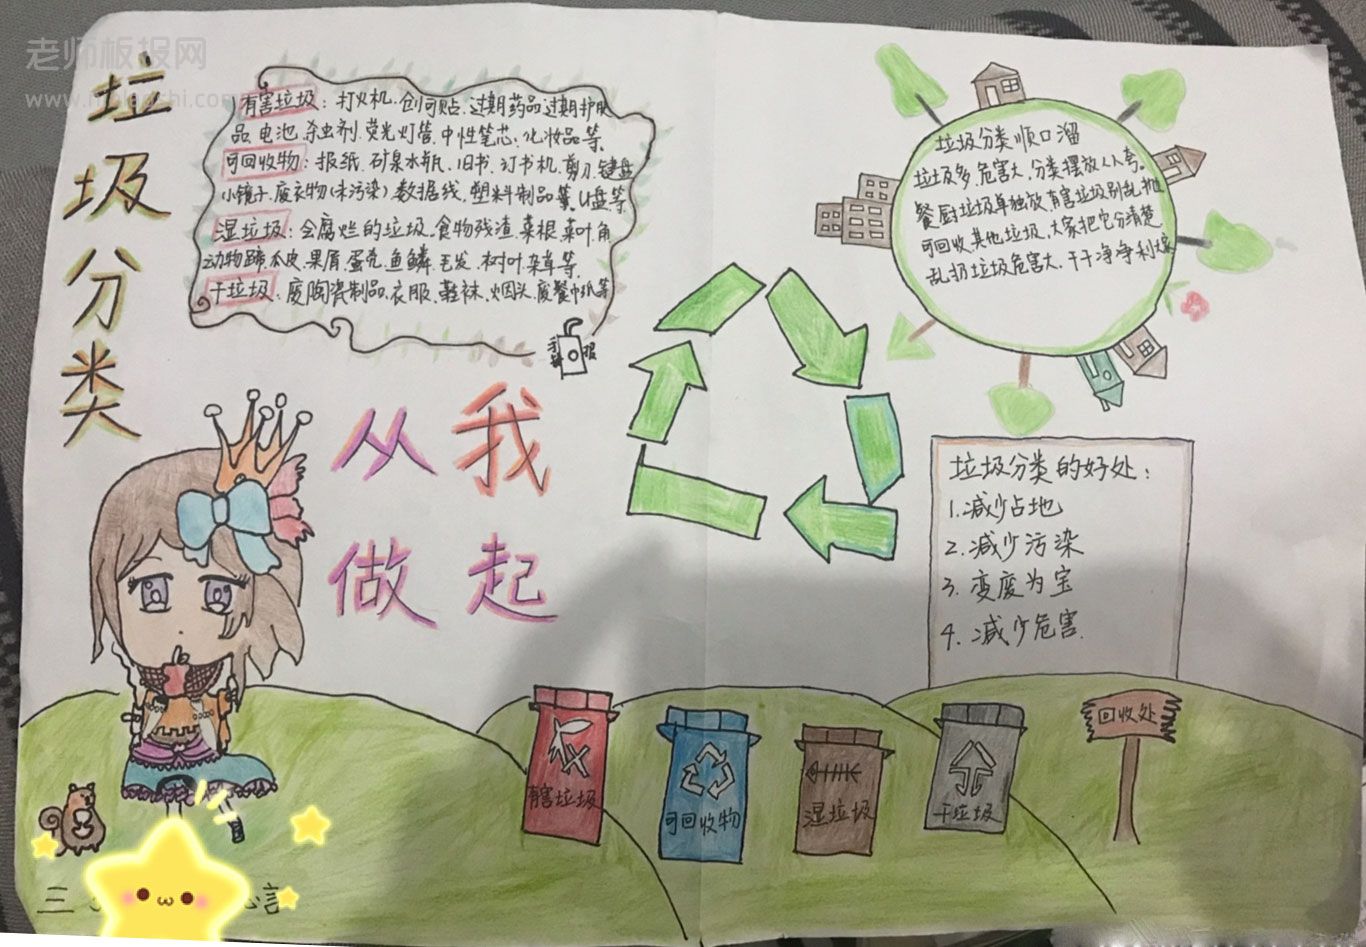 老师板报网
垃圾分类
有害垃圾：打火机、创可贴、过期药品过期护肤
品、电池、杀虫剂、荧光灯管、中性笔芯、化妆品等、
可回收物：报纸、矿泉水瓶、旧书、订书机、剪刀、键盘
小镜子、废衣物(未污染)数据线、塑料制品等、U盘等、
湿垃圾：会腐烂的垃圾、食物残渣、菜根、菜叶、角
动物蹄、瓜皮、果屑、蛋壳、鱼鳞、毛发、树叶、杂草等、
干垃圾：废陶瓷制品、衣服、鞋袜、烟头、废餐巾纸等
从我
做起
垃圾分类顺口溜
垃圾多,危害大,分类摆放人人夸。
餐厨垃圾单独放,有害垃圾别乱抛
可回收,其他垃圾,大家把它分清楚
乱扔垃圾危害大,干干净净利大家
垃圾分类的好处：
1.减少占地
2.减少污染
3.变废为宝
4.减少危害.
有害垃圾
可回收物
湿垃圾
干垃圾
回收处
三